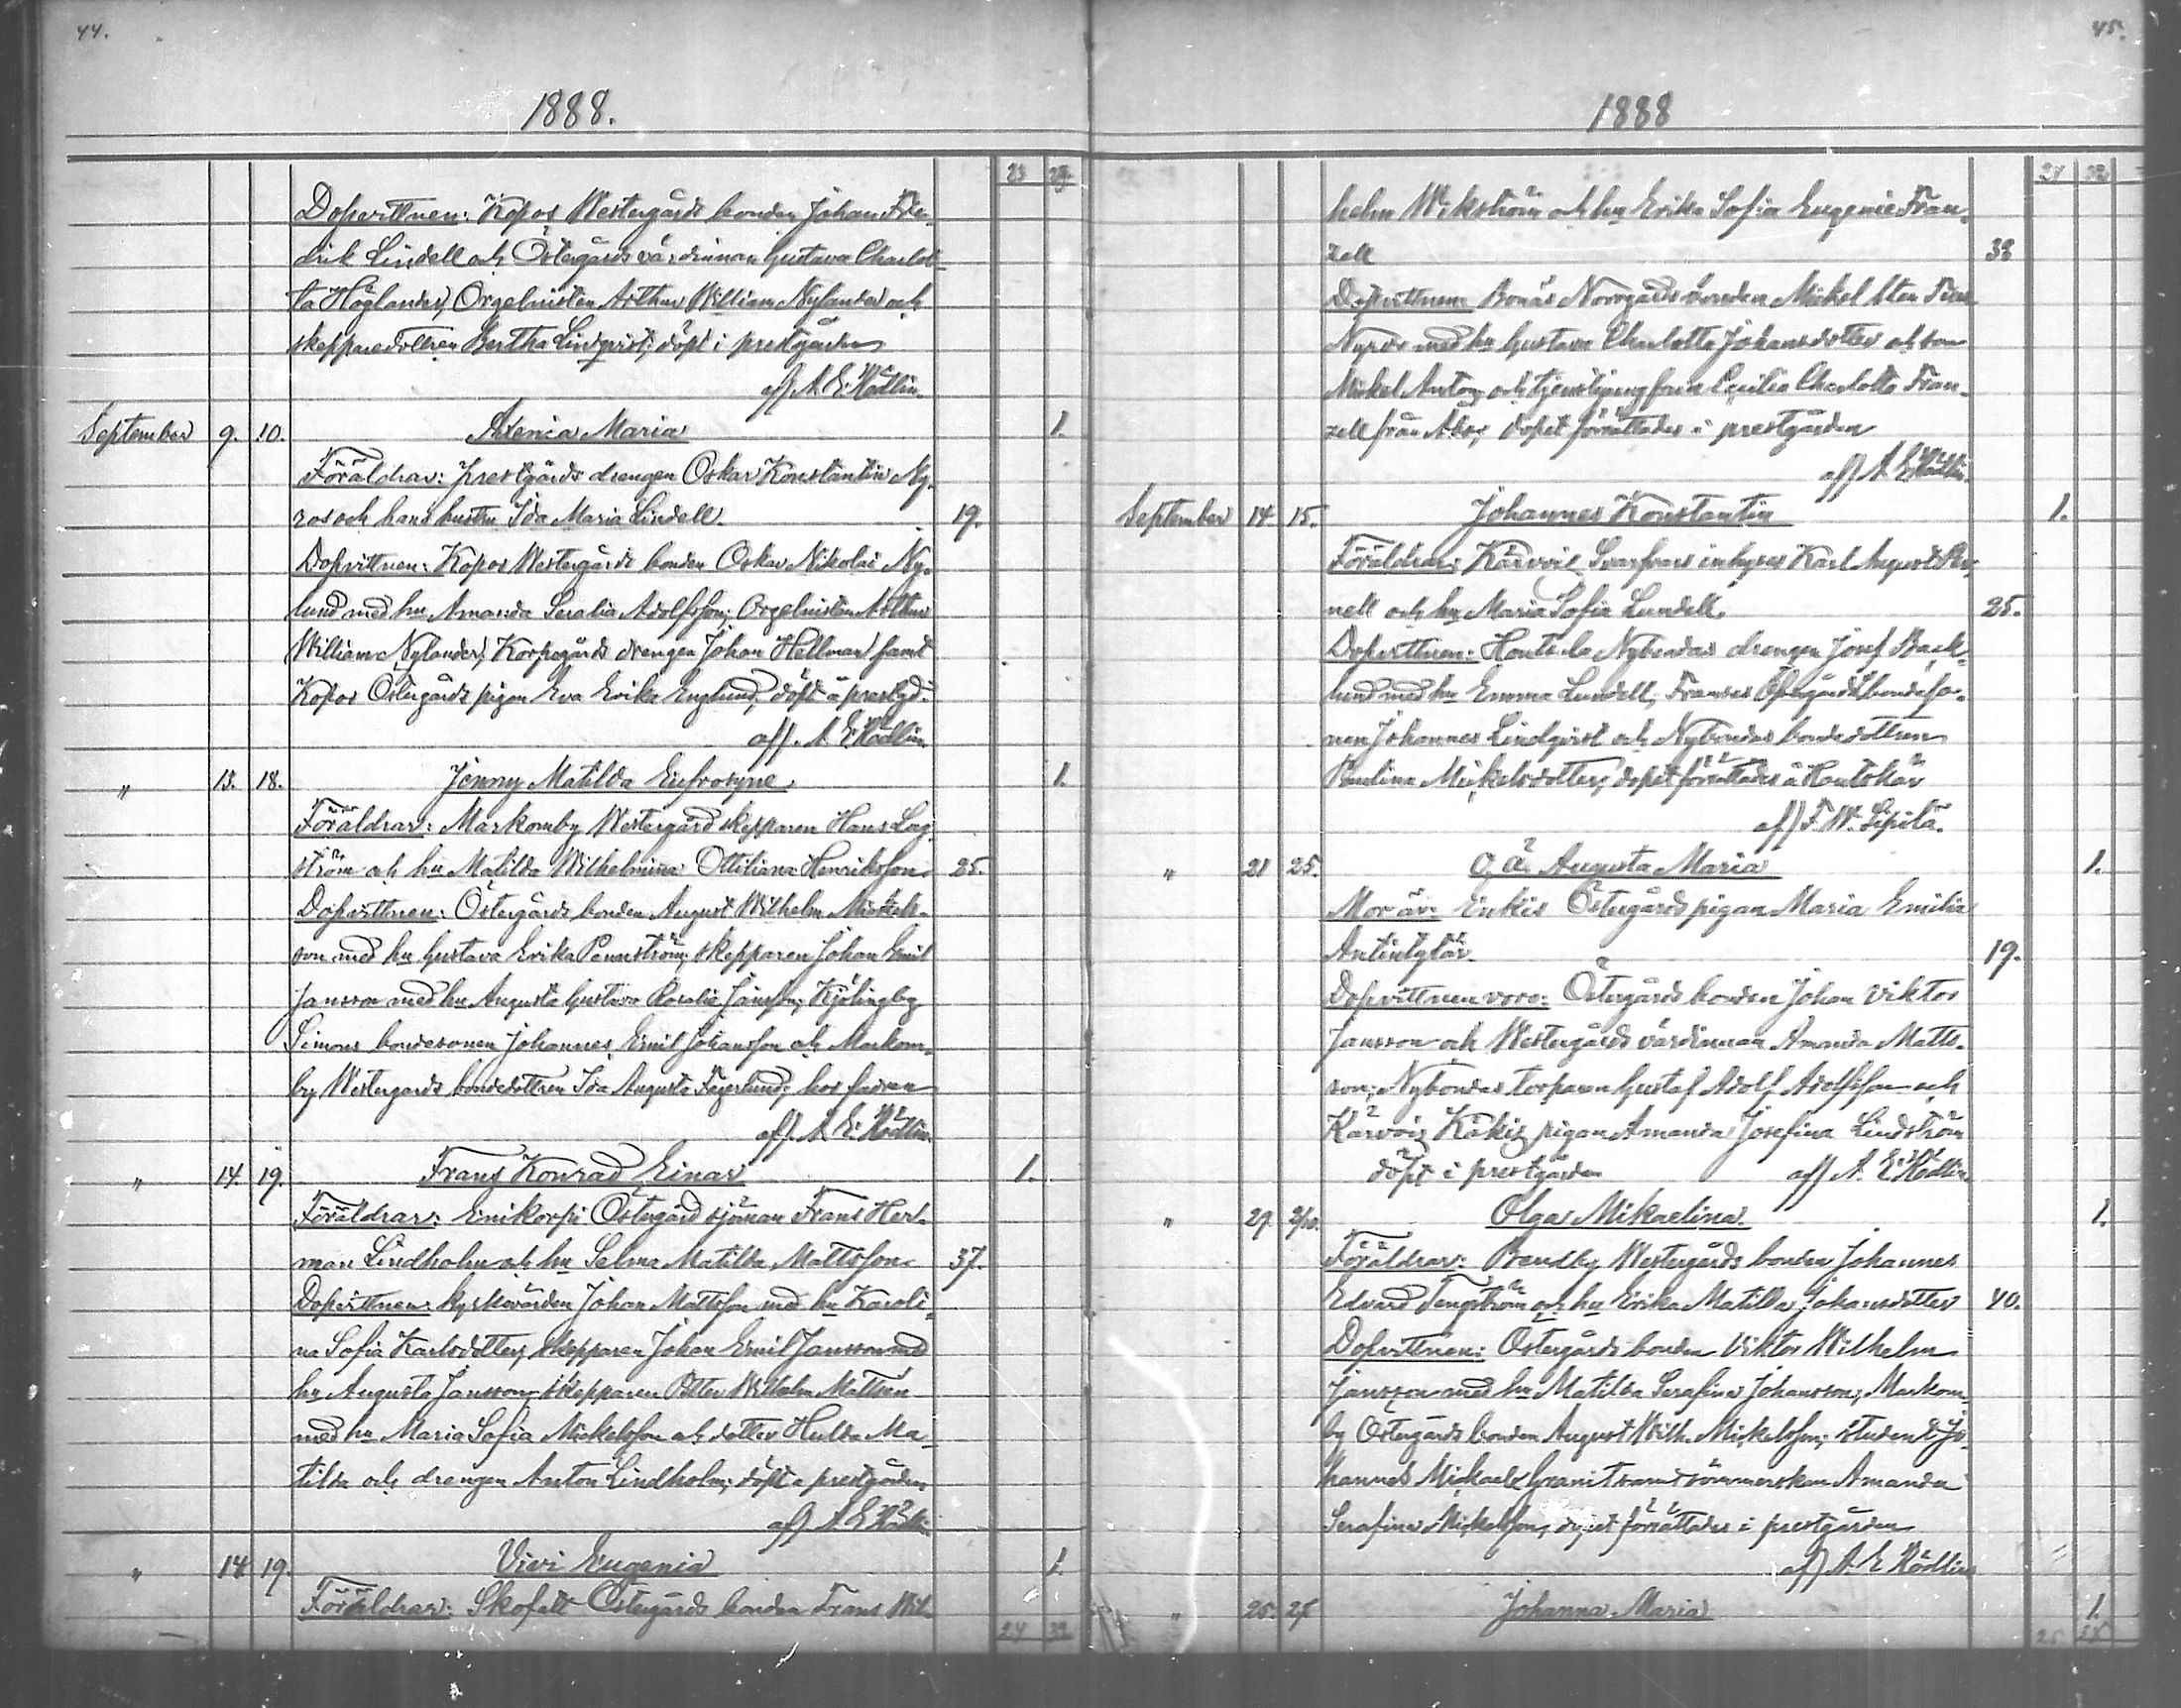 44.
1888.
23 29.
Dopvittnen: Kopos Westergårds bonden Johan Fre-
drik Lindell och Östergårds värdinnan Gustava Charlot-
ta Höglander, Orgelnisten Arthur William Nylander och
skepparedottren Bertha Lindqvist; döpt i prestgården
aff A. E. Hödlin.
September 9. 10. Axenia Maria 1.
Föräldrar: prestgårds drengen Oskar Konstantin Ny-
ros och hans hustru Ida Maria Lindell. 19.
Dopvittnen: Kopos Westergårds bonden Oskar Nikolai Ny-
lund med hu Amanda Seralia Adolfsson; Orgelnisten Arthur
William Nylander, Korpegårds drengen Johan Hellman samt
Kopos Östergårds pigan Eva Erika Englund; döpt å prestgd.
aff. A. E. Hödlin.
" 13. 18. Jenny Matilda Eufrosyne 1.
Föräldrar: Markomby Westergård skepparen Hans Lag-
ström och hu Matilda Wilhelmina Ottiliana Henriksson 25.
Dopvittnen: Östergårds bonden August Wilhelm Mickels-
son med hu Gustava Erika Pennström; skepparen Johan Emil
Jansson med hu Augusta Gustava Rosalie Jansson; Kjölingby
Simons bondesonen Johannes Emil Johansson och Markom-
by Westergards bondedottren Ida Augusta Fagerlund; hos fadren
aff. A. E. Hödlin.
" 14. 19. Frans Konrad Einar 1.
Föräldrar: Einikorpi Östergård sjöman Frans Her-
man Lindholm och hu Selma Matilda Mattsson 37.
Dopvittnen: kyrkvärden Johan Mattsson med hu Karoli-
na Sofia Karlsdotter, skepparen Johan Emil Jansson med
hu Augusta Jansson, skepparen Petter Wilhelm Mattson
med hu Maria Sofia Mickelsson och dotter Hulda Ma-
tilda och drengen Anton Lindholm; döpt i prestgården
aff A. E. Hödlin
" 14 19. Vivi Eugenia 1.
Föräldrar: Skofelt Östergårds bonden Frans Wil-
24 32
45.
1888
24 32
helm Wikström och hu Erika Sofia Eugenie Fran-
zell 32
Dopvittnen Bonäs Norrgårds bonden Mickel
Nyroos med hu Gustava Charlotta Johansdotter och son
Mickel Anton och tjenstejungfrun Cecilia Charlotta Fran-
zell från Åbo; dopet förrättades i prestgården
aff A. E. Hödlin.
September 14 15. Johannes Konstantin 1.
Föräldrar: Kärvois Svarfvars inhyses Karl August
nell och hu Maria Sofia Lundell. 25.
Dopvittnen: Hontsala Nybondas drengen Josef Back-
lund med hu Emma Lundell, Franses Östergårds bondeso-
nen Johannes Lindqvist och Nybondas bondedottren
Paulina Mickelsdotter; dopet förrättades å Houtskär
aff F. W. Sipilä.
" 21 25. o. ä. Augusta Maria 1.
Mor är: Enkis Östergårds pigan Maria Emilia
Antintytär. 19.
Dopvittnen voro: Östergårds bonden Johan Viktor
Jansson och Westergårds värdinnan Amanda Matts-
son; Nybondas torparen Gustaf Adolf Adolfsson och
Kärvois Käkis pigan Amanda Josefina Lindström
döpt i prestgården aff A. E. Hödlin
" 29. 2/10. Olga Mikaelina 1.
Föräldrar: Bendby Westergårds bonden Johannes
Edvard Tengström och hu Erika Matilda Johansdotter 40.
Dopvittnen: Östergårds bonden Viktor Wilhelm
Jansson med hu Matilda Serafina Johansson; Markom-
by Östergårds bonden August Wilh. Mickelsson; student Jo-
hannes Mickael Granit samt sömmerskan Amanda
Serafina Mickelsson, dopet förrättades i prestgården
aff A. E. Hödlin
" 25. 27 Johanna Maria 1.
25